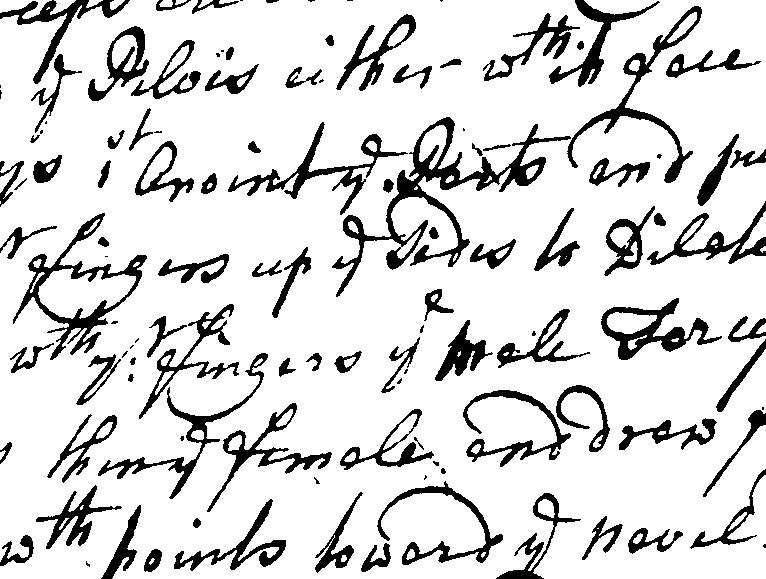 ye Pelvis either wth ih face
ys 1st Anoint ye Parts and pu
r fingers up ye Sides to Dilate
wth yr fingers ye male Forcep
then ye female and draw
wth points toward ye navel